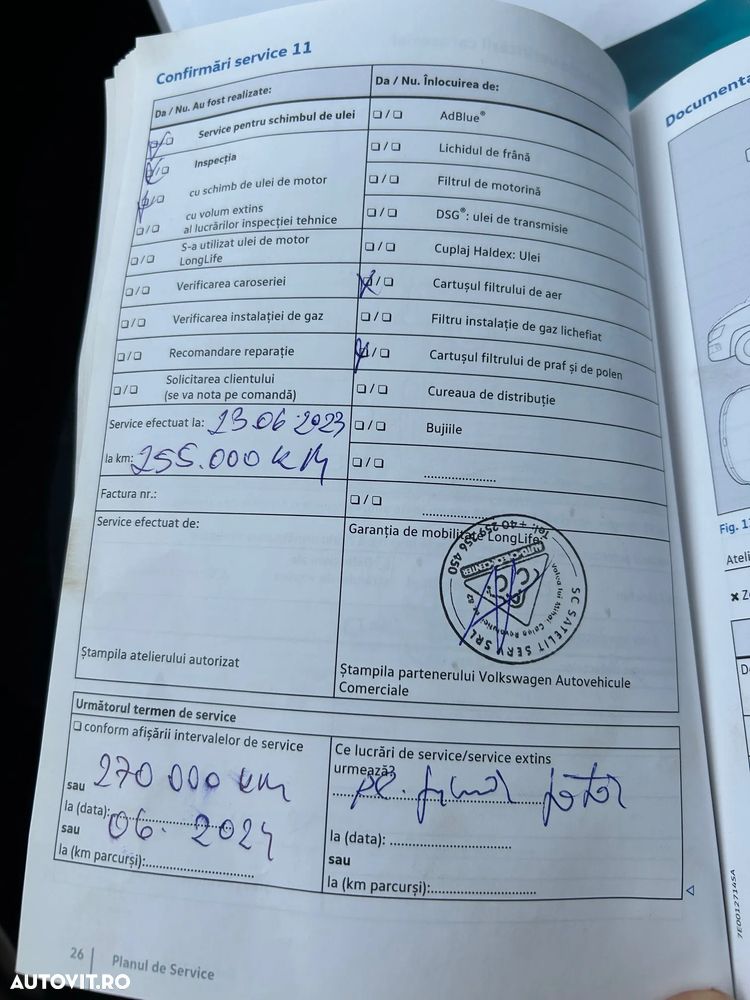 Confirmări service 11
Da / Nu. Au fost realizate:
Service pentru schimbul de ulei
Inspecția
cu schimb de ulei de motor
cu volum extins
al lucrărilor inspecției tehnice
S-a utilizat ulei de motor
LongLife
Verificarea caroseriei
Verificarea instalației de gaz
Recomandare reparație
Solicitarea clientului
(se va nota pe comandă)
Service efectuat la: 23.06.2023
la km: 255.000 KM
Factura nr.:
Service efectuat de:
Ștampila atelierului autorizat
Da / Nu. Înlocuirea de:
AdBlue®
Lichidul de frână
Filtrul de motorină
DSG®: ulei de transmisie
Cuplaj Haldex: Ulei
Cartușul filtrului de aer
Filtru instalație de gaz lichefiat
Cartușul filtrului de praf și de polen
Cureaua de distribuție
Bujiile
Garanția de mobilitate LongLife
SC SATELIT SERV SRL
Tel: +40 259 256 450
Ștampila partenerului Volkswagen Autovehicule
Comerciale
Următorul termen de service
conform afișării intervalelor de service
sau 270 000 KM
la (data): 06. 2024
sau
la (km parcurși):
Ce lucrări de service/service extins
urmează?
la (data):
sau
la (km parcurși):
26 Planul de Service
Documenta
Fig. 1
Ateli
7E0012714SA
AUTOVIT.RO